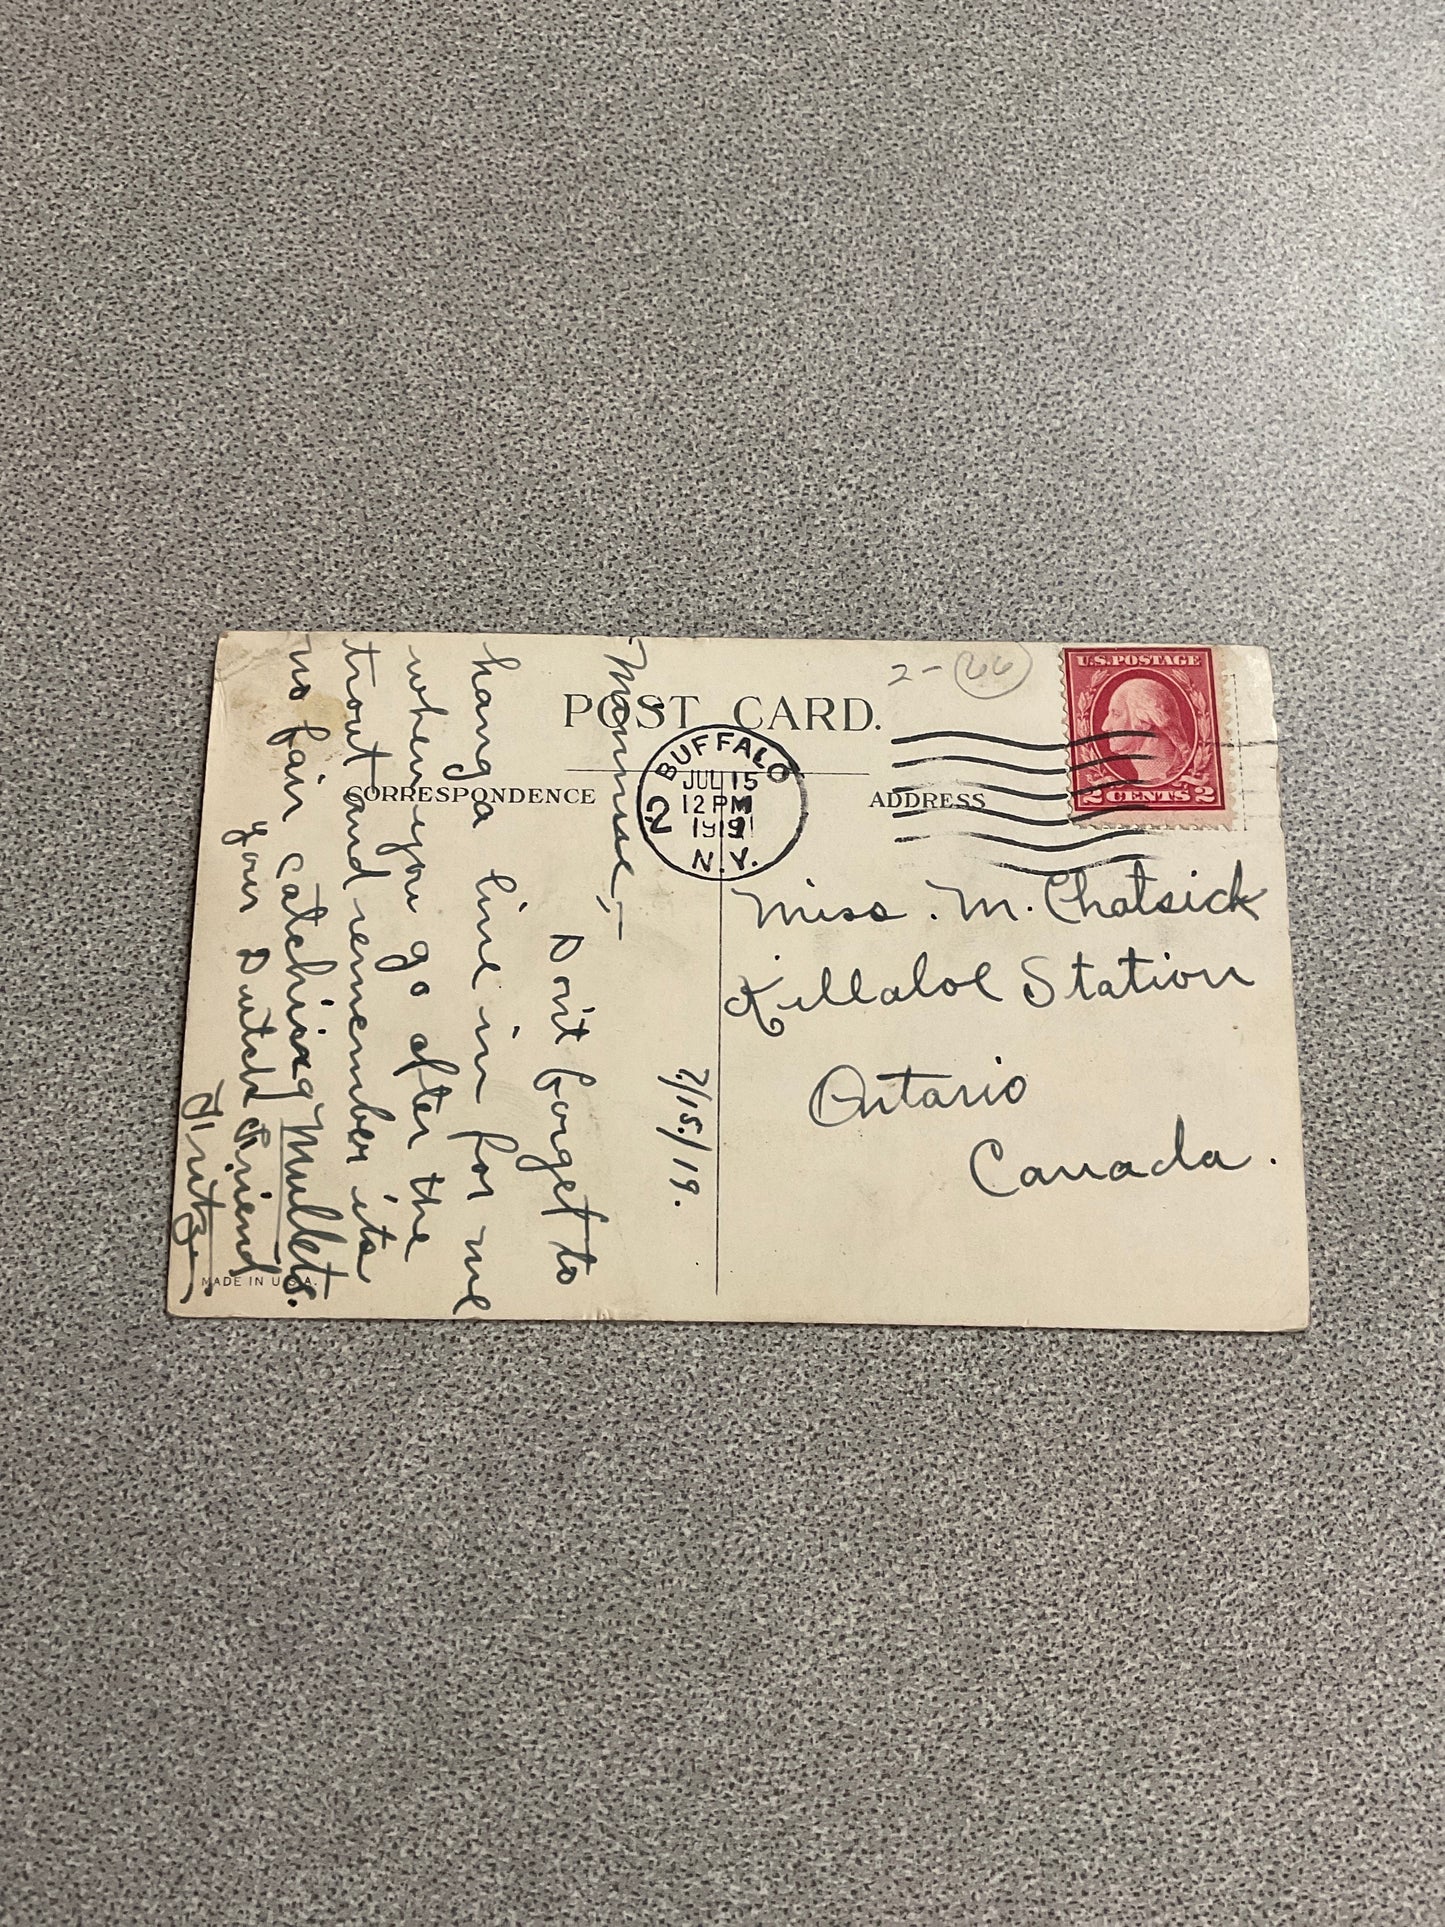 POST CARD.
CORRESPONDENCE
ADDRESS
2-66
U.S. POSTAGE
2 CENTS 2
BUFFALO
JUL 15
12 PM
1919
N.Y.
2
Miss. M. Chatsick
Killaloe Station
Ontario
Canada.
7/15./19.
Mannie,—
Don't forget to
hang a line in for me
when you go after the
trout and remember its
no fair catching Mullets.
your Dutch friend
Fritz
MADE IN U.S.A.